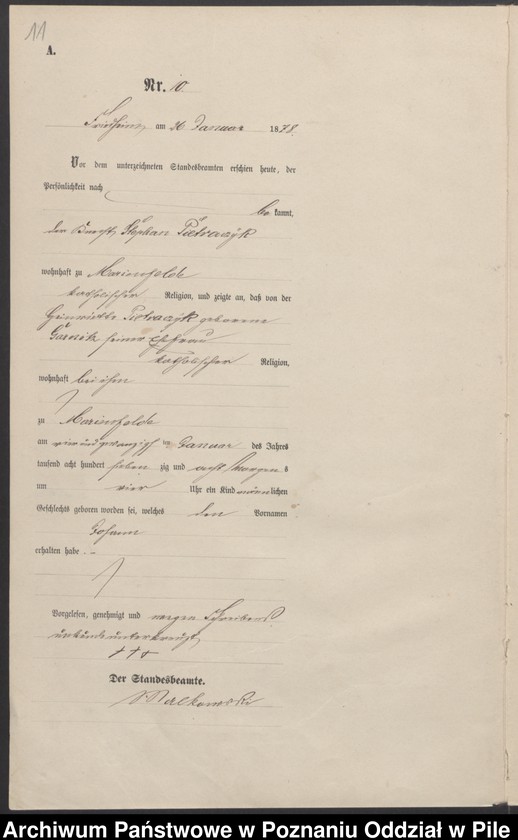 11
A.
Nr. 10.
Friedheim am 26 Januar 1878.
Vor dem unterzeichneten Standesbeamten erschien heute, der
Persönlichkeit nach
be kannt,
der Knecht Stephan Pietraczyk
wohnhaft zu Marienfelde
katholischer Religion, und zeigte an, daß von der
Henriette Pietraczyk geborene
seiner Ehefrau
katholischer Religion,
wohnhaft bei ihm
zu Marienfelde
am vier und zwanzigsten Januar des Jahres
tausend acht hundert sieben zig und acht Morgens
um vier Uhr ein Kind männlichen
Geschlechts geboren worden sei, welches den Vornamen
Johann
erhalten habe.
Vorgelesen, genehmigt und wegen Schreibens
unkunde unterkreuzt
+++
Der Standesbeamte.
Archiwum Państwowe w Poznaniu Oddział w Pile